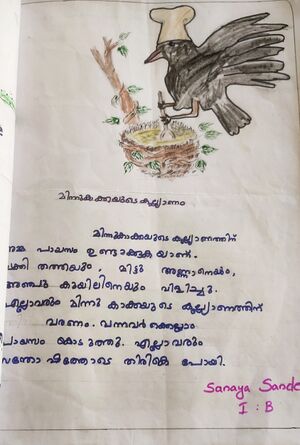 മിന്നുകാക്കയുടെ കല്ല്യാണം
മിന്നുകാക്കയുടെ കല്ല്യാണത്തിന്
അമ്മ പായസം ഉണ്ടാക്കുക യാണ്.
തത്തയും, മിട്ടു അണ്ണാനെയും,
കുയിലിനെയും വിളിച്ചു.
എല്ലാവരും മിന്നു കാക്കയുടെ കല്ല്യാണത്തിന്
വരണം. വന്നവർക്കെല്ലാം
പായസം കൊടുത്തു. എല്ലാവരും
സന്തോഷത്തോടെ തിരികെ പോയി.
Sanaya Sande
I : B